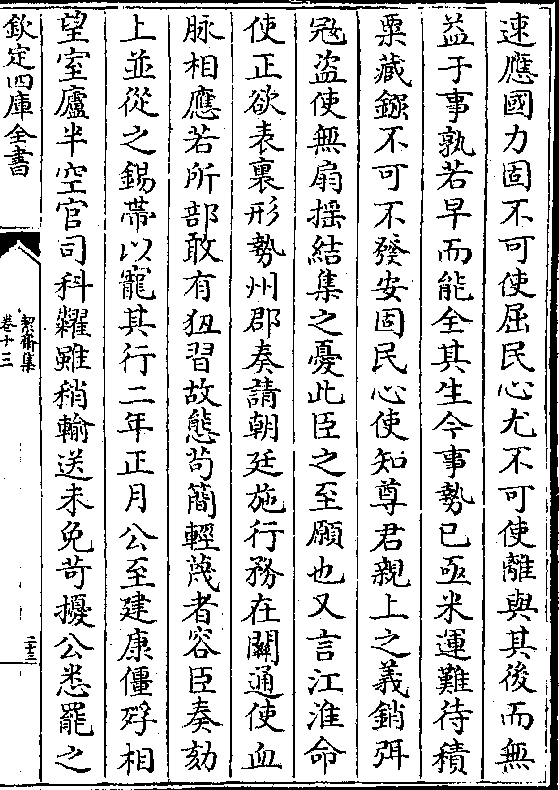 速應國力固不可使屈民心尤不可使離與其後而無
益于事孰若早而能全其生今事勢已亟米運難待積
粟藏鏹不可不發安固民心使知尊君親上之義銷弭
冦盜使無扇揺結集之憂此臣之至願也又言江淮命
使正欲表裏形勢州郡奏請朝廷施行務在關通使血
脉相應若所部敢有狃習故態茍簡輕蔑者容臣奏劾
上並從之錫帶以寵其行二年正月公至建康僵殍相
望室廬半空官司科糴雖稍輸送未免苛擾公悉罷之
欽定四庫全書
絜齋集
卷十三
二十三